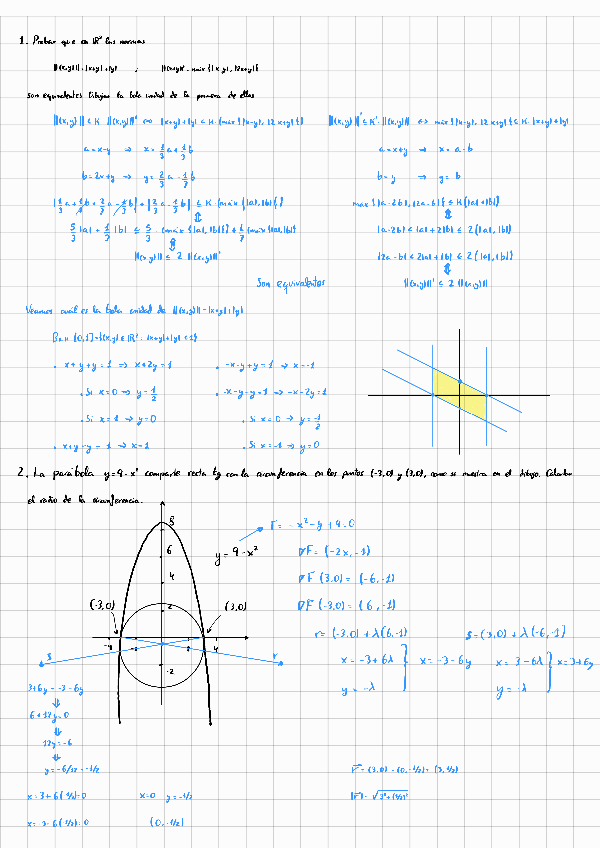 1. Probar que en ℝ² las normas
||(x,y)|| = |x+y|+|y| ; ||(x,y)||' = max{|x-y|, |2x+y|}
son equivalentes. Dibujar la bola unidad de la primera de ellas
||(x,y)|| ≤ K ||(x,y)||' ⇔ |x+y|+|y| ≤ K·(max{|x-y|, |2x+y|})
a=x-y → x = 1/3 a + 1/3 b
b=2x+y → y = 2/3 a - 1/3 b
|1/3 a + 1/3 b + 2/3 a - 1/3 b| + |2/3 a - 1/3 b| ≤ K·(max{|a|,|b|})
5/3 |a| + 1/3 |b| ≤ 5/3 ·(max{|a|,|b|}) + 1/3 (max{|a|,|b|})
||(x,y)|| ≤ 2 ||(x,y)||'
||(x,y)||' ≤ K'·||(x,y)|| ⇔ max{|x-y|, |2x+y|} ≤ K·|x+y|+|y|
a=x+y → x=a-b
b=y → y=b
max{|a-2b|, |2a-b|} ≤ K(|a|+|b|)
|a-2b| ≤ |a|+2|b| ≤ 2(|a|,|b|)
|2a-b| ≤ 2|a|+|b| ≤ 2(|a|,|b|)
||(x,y)||' ≤ 2||(x,y)||
Son equivalentes
Veamos cuál es la bola unidad de ||(x,y)|| = |x+y|+|y|
B||·|| [0,1] = {(x,y) ∈ ℝ² : |x+y|+|y| ≤ 1}
. x+y+y=1 → x+2y=1
. Si x=0 → y=1/2
. Si x=1 → y=0
. x+y-y=1 → x=1
. -x-y+y=1 → x=-1
. -x-y-y=1 → -x-2y=1
. Si x=0 → y=-1/2
. Si x=-1 → y=0
2. La parábola y=9-x² comparte recta tg con la circunferencia en los puntos (-3,0) y (3,0), como se muestra en el dibujo. Calcular
el radio de la circunferencia.
8
6
4
2
-2
-4
-2
4
(-3,0)
(3,0)
s
r
y=9-x²
F = -x²-y+9=0
∇F = (-2x,-1)
∇F (3,0) = (-6,-1)
∇F (-3,0) = (6,-1)
r = (-3,0) + λ(6,-1)
x=-3+6λ
y=-λ
x=-3-6y
s = (3,0) + λ(-6,-1)
x=3-6λ
y=-λ
x=3+6y
3+6y=-3-6y
6+12y=0
12y=-6
y=-6/12=-1/2
x=3+6(-1/2)=0
x=3-6(1/2)=0
x=0 y=-1/2
(0,-1/2)
r̄ = (3,0)-(0,-1/2) = (3,1/2)
|r̄| = √3²+(1/2)²